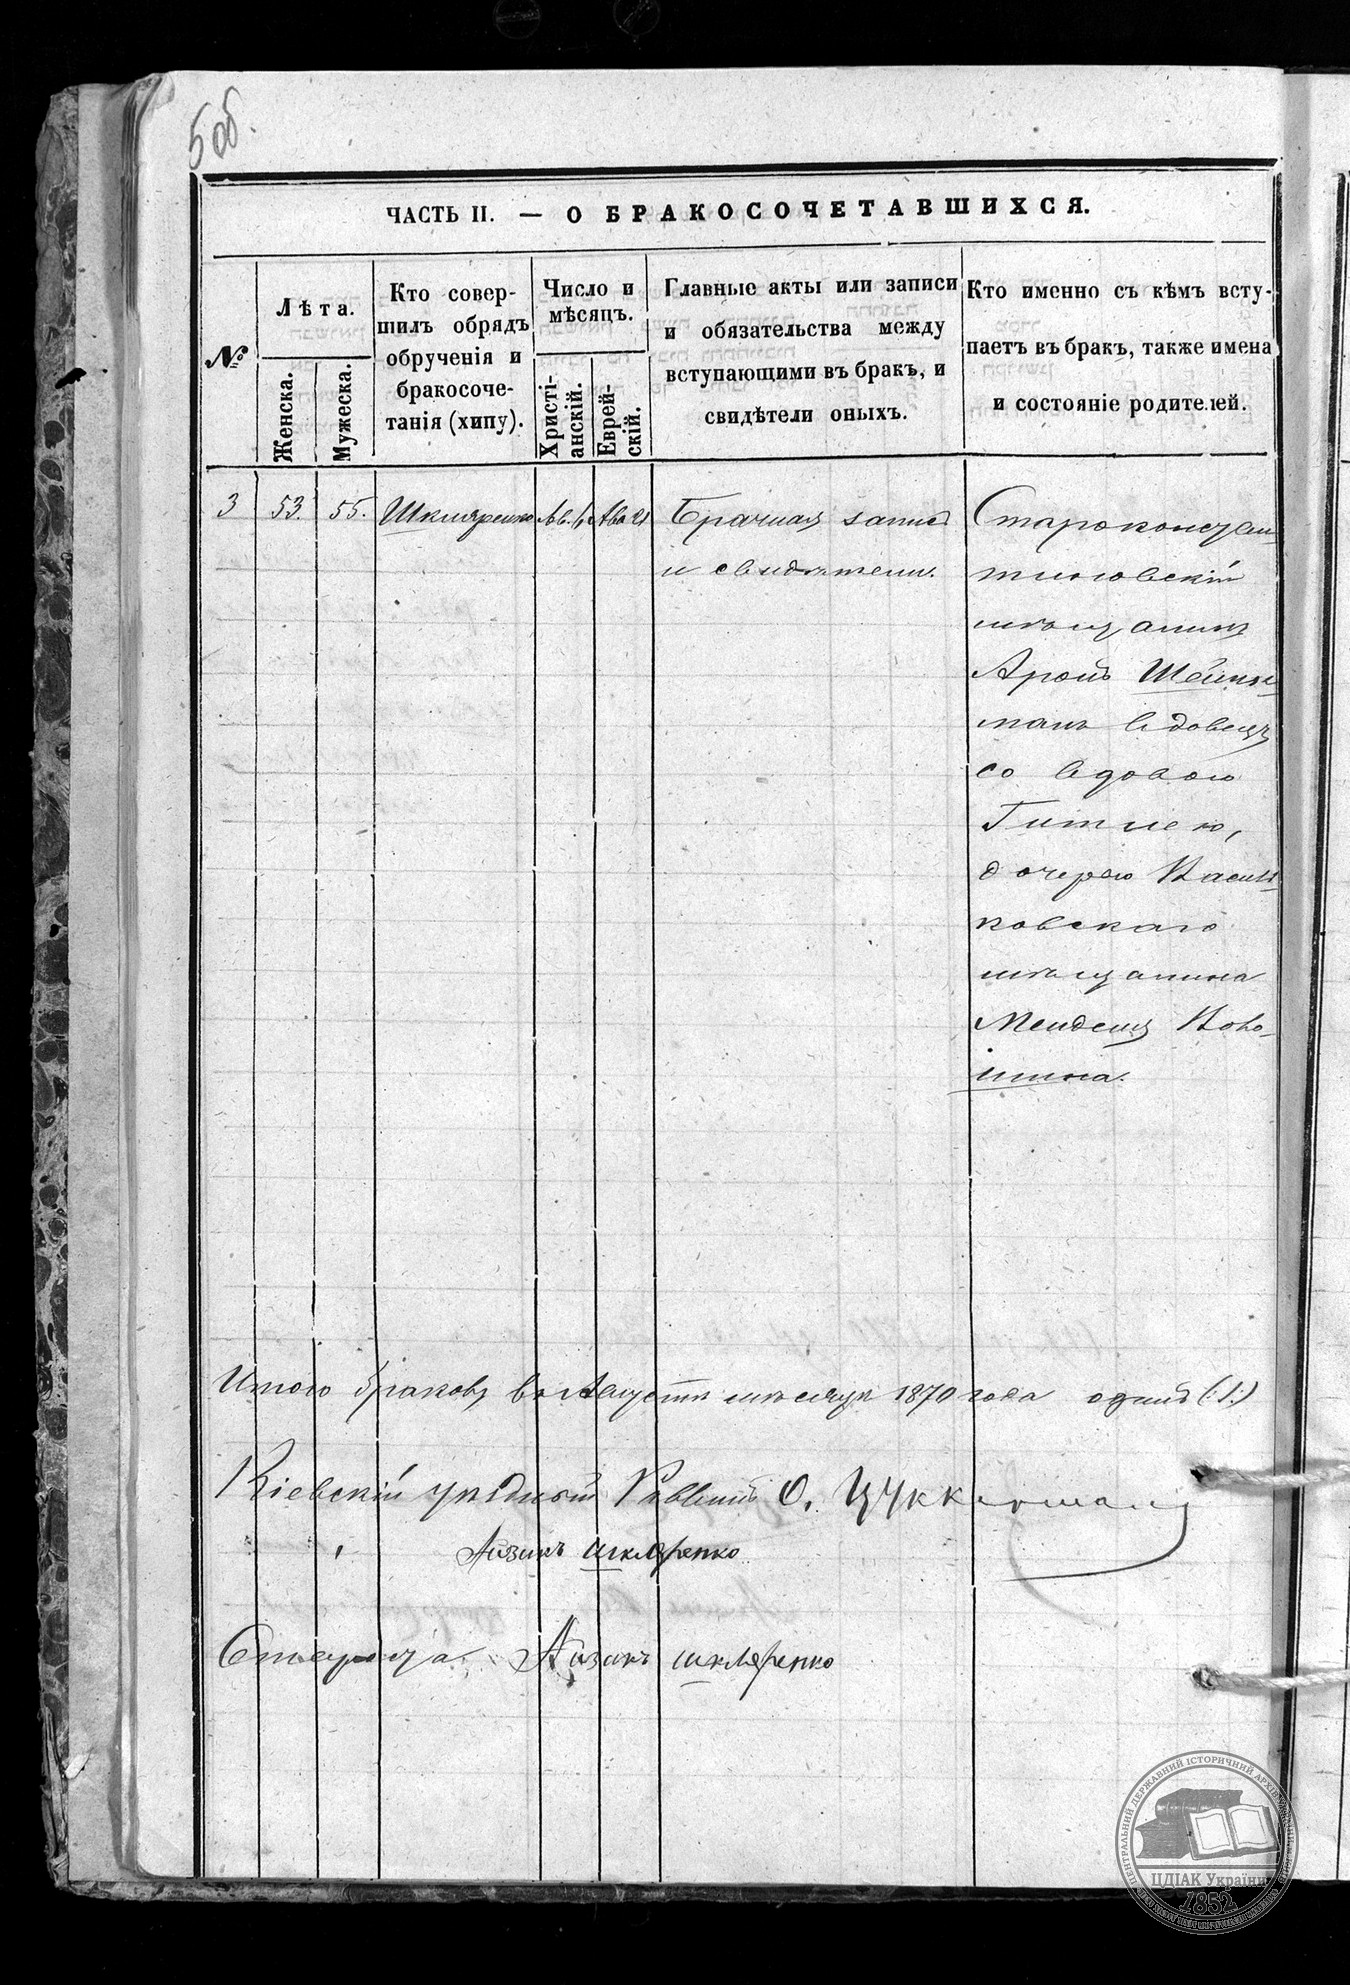 5об.
ЧАСТЬ II. — О БРАКОСОЧЕТАВШИХСЯ.
№
Лѣта.
Женска.
Мужеска.
Кто совер-
шилъ обрядъ
обрученія и
бракосоче-
танія (хипу).
Число и
мѣсяцъ.
Христі-
анскій.
Еврей-
скій.
Главные акты или записи
и обязательства между
вступающими въ бракъ, и
свидѣтели оныхъ.
Кто именно съ кѣмъ всту-
паетъ въ бракъ, также имена
и состояніе родителей.
3
53.
55.
Шкляренко
Ав.
Ава 21
Брачная запись
и свидѣтели.
Староконстан-
тиновскій
мѣщанинъ
Аронъ Шейнк-
манъ вдовецъ
со вдовою
Гитлею,
дочерью Василь-
ковскаго
мѣщанина
Менделя Воло-
шина.
Итого браковъ въ Августѣ мѣсяцѣ 1870 года одинъ (:1:)
Кіевскій уѣздный Раввинъ О. Цуккерманъ
Аизикъ Шкляренко
Староста Аизикъ Шкляренко
ЦЕНТРАЛЬНИЙ ДЕРЖАВНИЙ ІСТОРИЧНИЙ АРХІВ
ЦДІАК України
1852